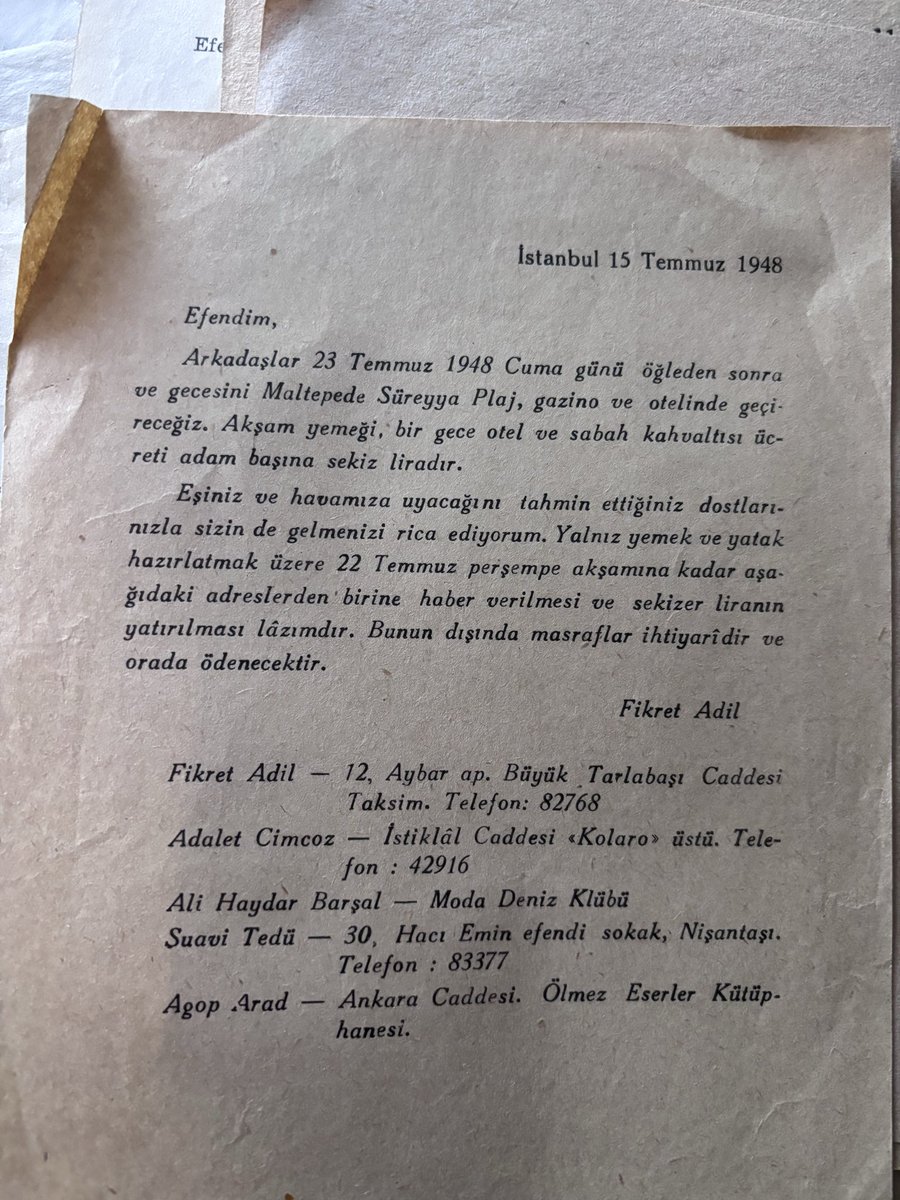 Efe
İstanbul 15 Temmuz 1948
Efendim,
Arkadaşlar 23 Temmuz 1948 Cuma günü öğleden sonra
ve gecesini Maltepede Süreyya Plaj, gazino ve otelinde geçi-
receğiz. Akşam yemeği, bir gece otel ve sabah kahvaltısı üc-
reti adam başına sekiz liradır.
Eşiniz ve havamıza uyacağını tahmin ettiğiniz dostları-
nızla sizin de gelmenizi rica ediyorum. Yalnız yemek ve yatak
hazırlatmak üzere 22 Temmuz perşempe akşamına kadar aşa-
ğıdaki adreslerden birine haber verilmesi ve sekizer liranın
yatırılması lâzımdır. Bunun dışında masraflar ihtiyarîdir ve
orada ödenecektir.
Fikret Adil
Fikret Adil — 12, Aybar ap. Büyük Tarlabaşı Caddesi
Taksim. Telefon: 82768
Adalet Cimcoz — İstiklâl Caddesi «Kolaro» üstü. Tele-
fon : 42916
Ali Haydar Barşal — Moda Deniz Klübü
Suavi Tedü — 30, Hacı Emin efendi sokak, Nişantaşı.
Telefon : 83377
Agop Arad — Ankara Caddesi. Ölmez Eserler Kütüp-
hanesi.